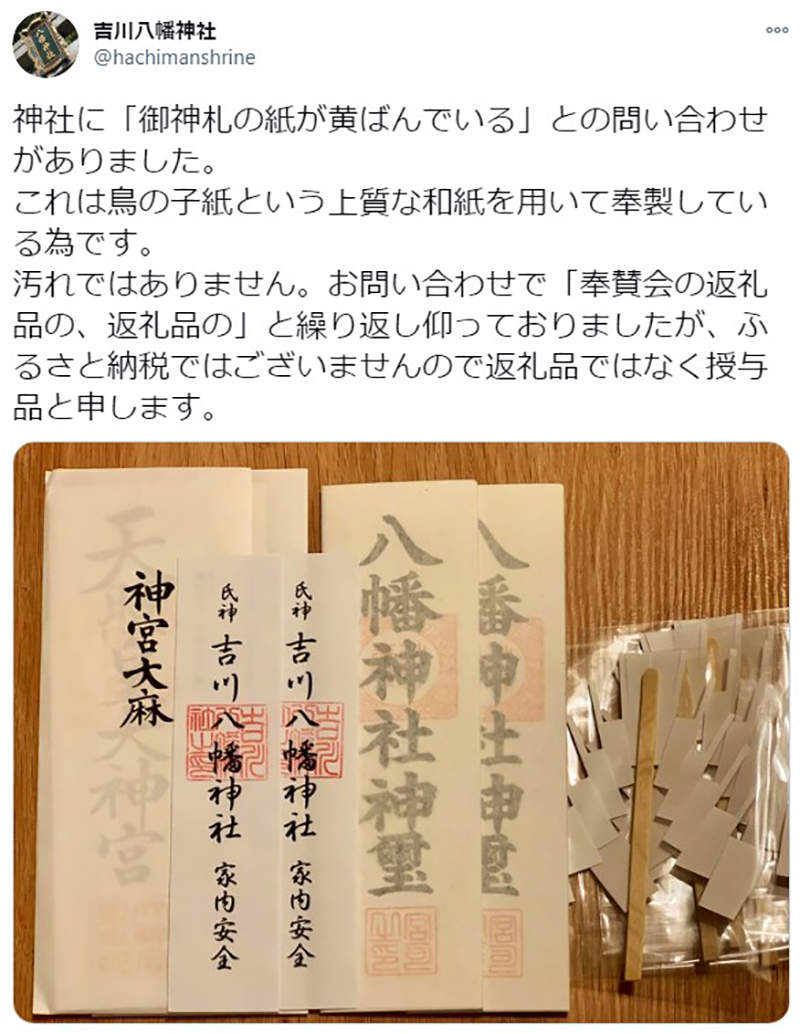 吉川八幡神社
@hachimanshrine
神社に「御神札の紙が黄ばんでいる」との問い合わせ
がありました。
これは鳥の子紙という上質な和紙を用いて奉製してい
る為です。
汚れではありません。お問い合わせで「奉賛会の返礼
品の、返礼品の」と繰り返し仰っておりましたが、ふ
るさと納税ではございませんので返礼品ではなく授与
品と申します。
神宮大麻
氏神 吉川八幡神社 家内安全
氏神 吉川八幡神社 家内安全
八幡神社神璽
八幡神社神璽